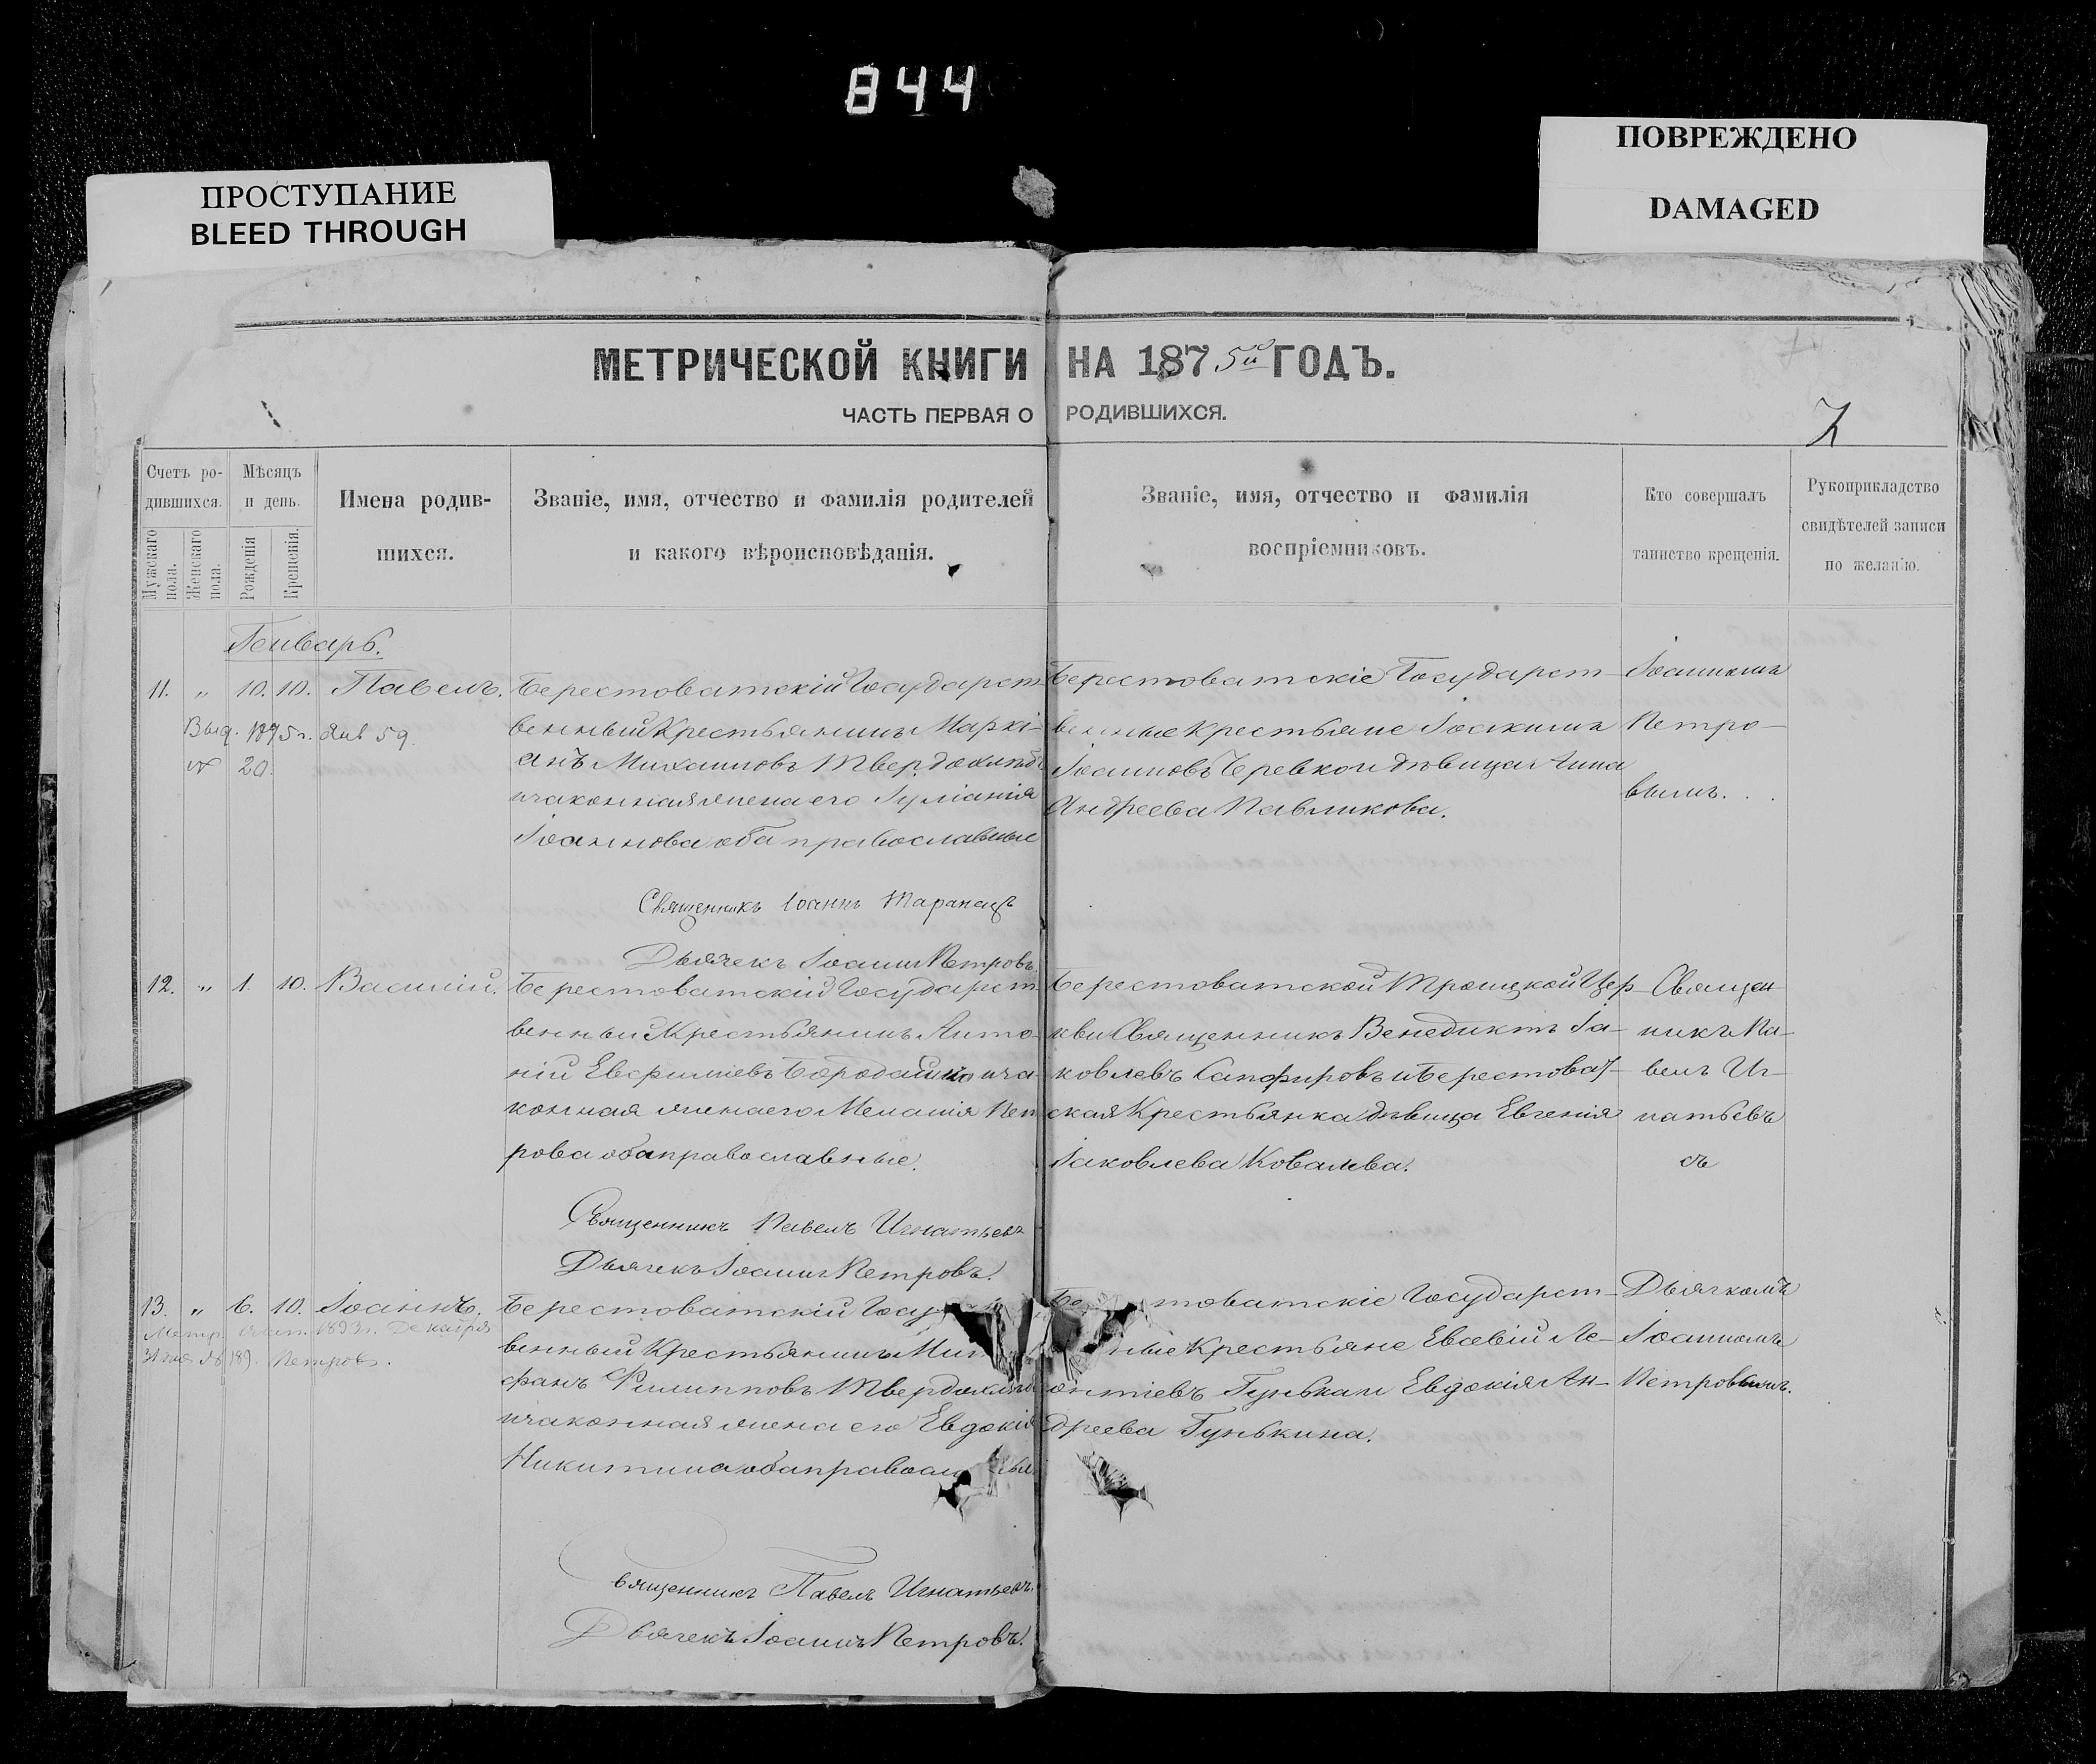 844
ПРОСТУПАНИЕ
BLEED THROUGH
ПОВРЕЖДЕНО
DAMAGED
МЕТРИЧЕСКОЙ КНИГИ НА 1875й ГОДЪ.
ЧАСТЬ ПЕРВАЯ О РОДИВШИХСЯ.
7
Счетъ ро-
дившихся.
Мужскаго пола.
Женскаго пола.
Мѣсяцъ
и день.
Рожденія
Крещенія.
Имена родив-
шихся.
Званіе, имя, отчество и фамилія родителей
и какого вѣроисповѣданія.
Званіе, имя, отчество и фамилія
воспріемниковъ.
Кто совершалъ
таинство крещенія.
Рукоприкладство
свидѣтелей записи
по желанію.
Генварь.
11. " 10. 10. Павелъ.
Выд. 1895г. Янв 59.
№ 20.
Берестоватскій Государст
венный Крестьянинъ Маркі-
анъ Михаиловъ Твердохлѣбъ
и законная жена его Іуліанія
Іоаннова оба православные
Священникъ Іоаннъ Таранецъ
Дьячекъ Іоаннъ Петровъ.
Берестоватскіе Государст-
венные крестьяне Іоакимъ
Іоанновъ Черевко и дѣвица Анна
Андреева Павликова.
Іоанномъ
Петро-
вымъ.
12. " 1. 10. Василій.
Берестоватскій Государст-
венный Крестьянинъ Анто-
ній Евфиміевъ и за-
конная жена его Меланія Пет
рова оба православные.
Священникъ Павелъ Игнатьевъ
Дьячекъ Іоаннъ Петровъ.
Берестоватской Троицкой Цер-
кви Священникъ Венедиктъ Іа-
ковлевъ Сапфировъ и Берестоват-
ская Крестьянка дѣвица Евгенія
Іаковлева Ковалева.
Священ-
никъ Па-
велъ Иг-
натьевъ
13. " 6. 10. Іоаннъ.
Метр. 1893г. Декабря
Петровъ.
Берестоватскій Госу
венный Крестьянинъ
фанъ Филипповъ Твердохлѣбъ
и законная жена его Евдокія
Никитина оба православные
Священникъ Павелъ Игнатьевъ.
Дьячекъ Іоаннъ Петровъ.
Бе товатскіе Государст-
ные Крестьяне Евсевій Ле-
онтіевъ Гунька и Евдокія Ан-
дреева Гунькина.
Дьячкомъ
Іоанномъ
Петровымъ.